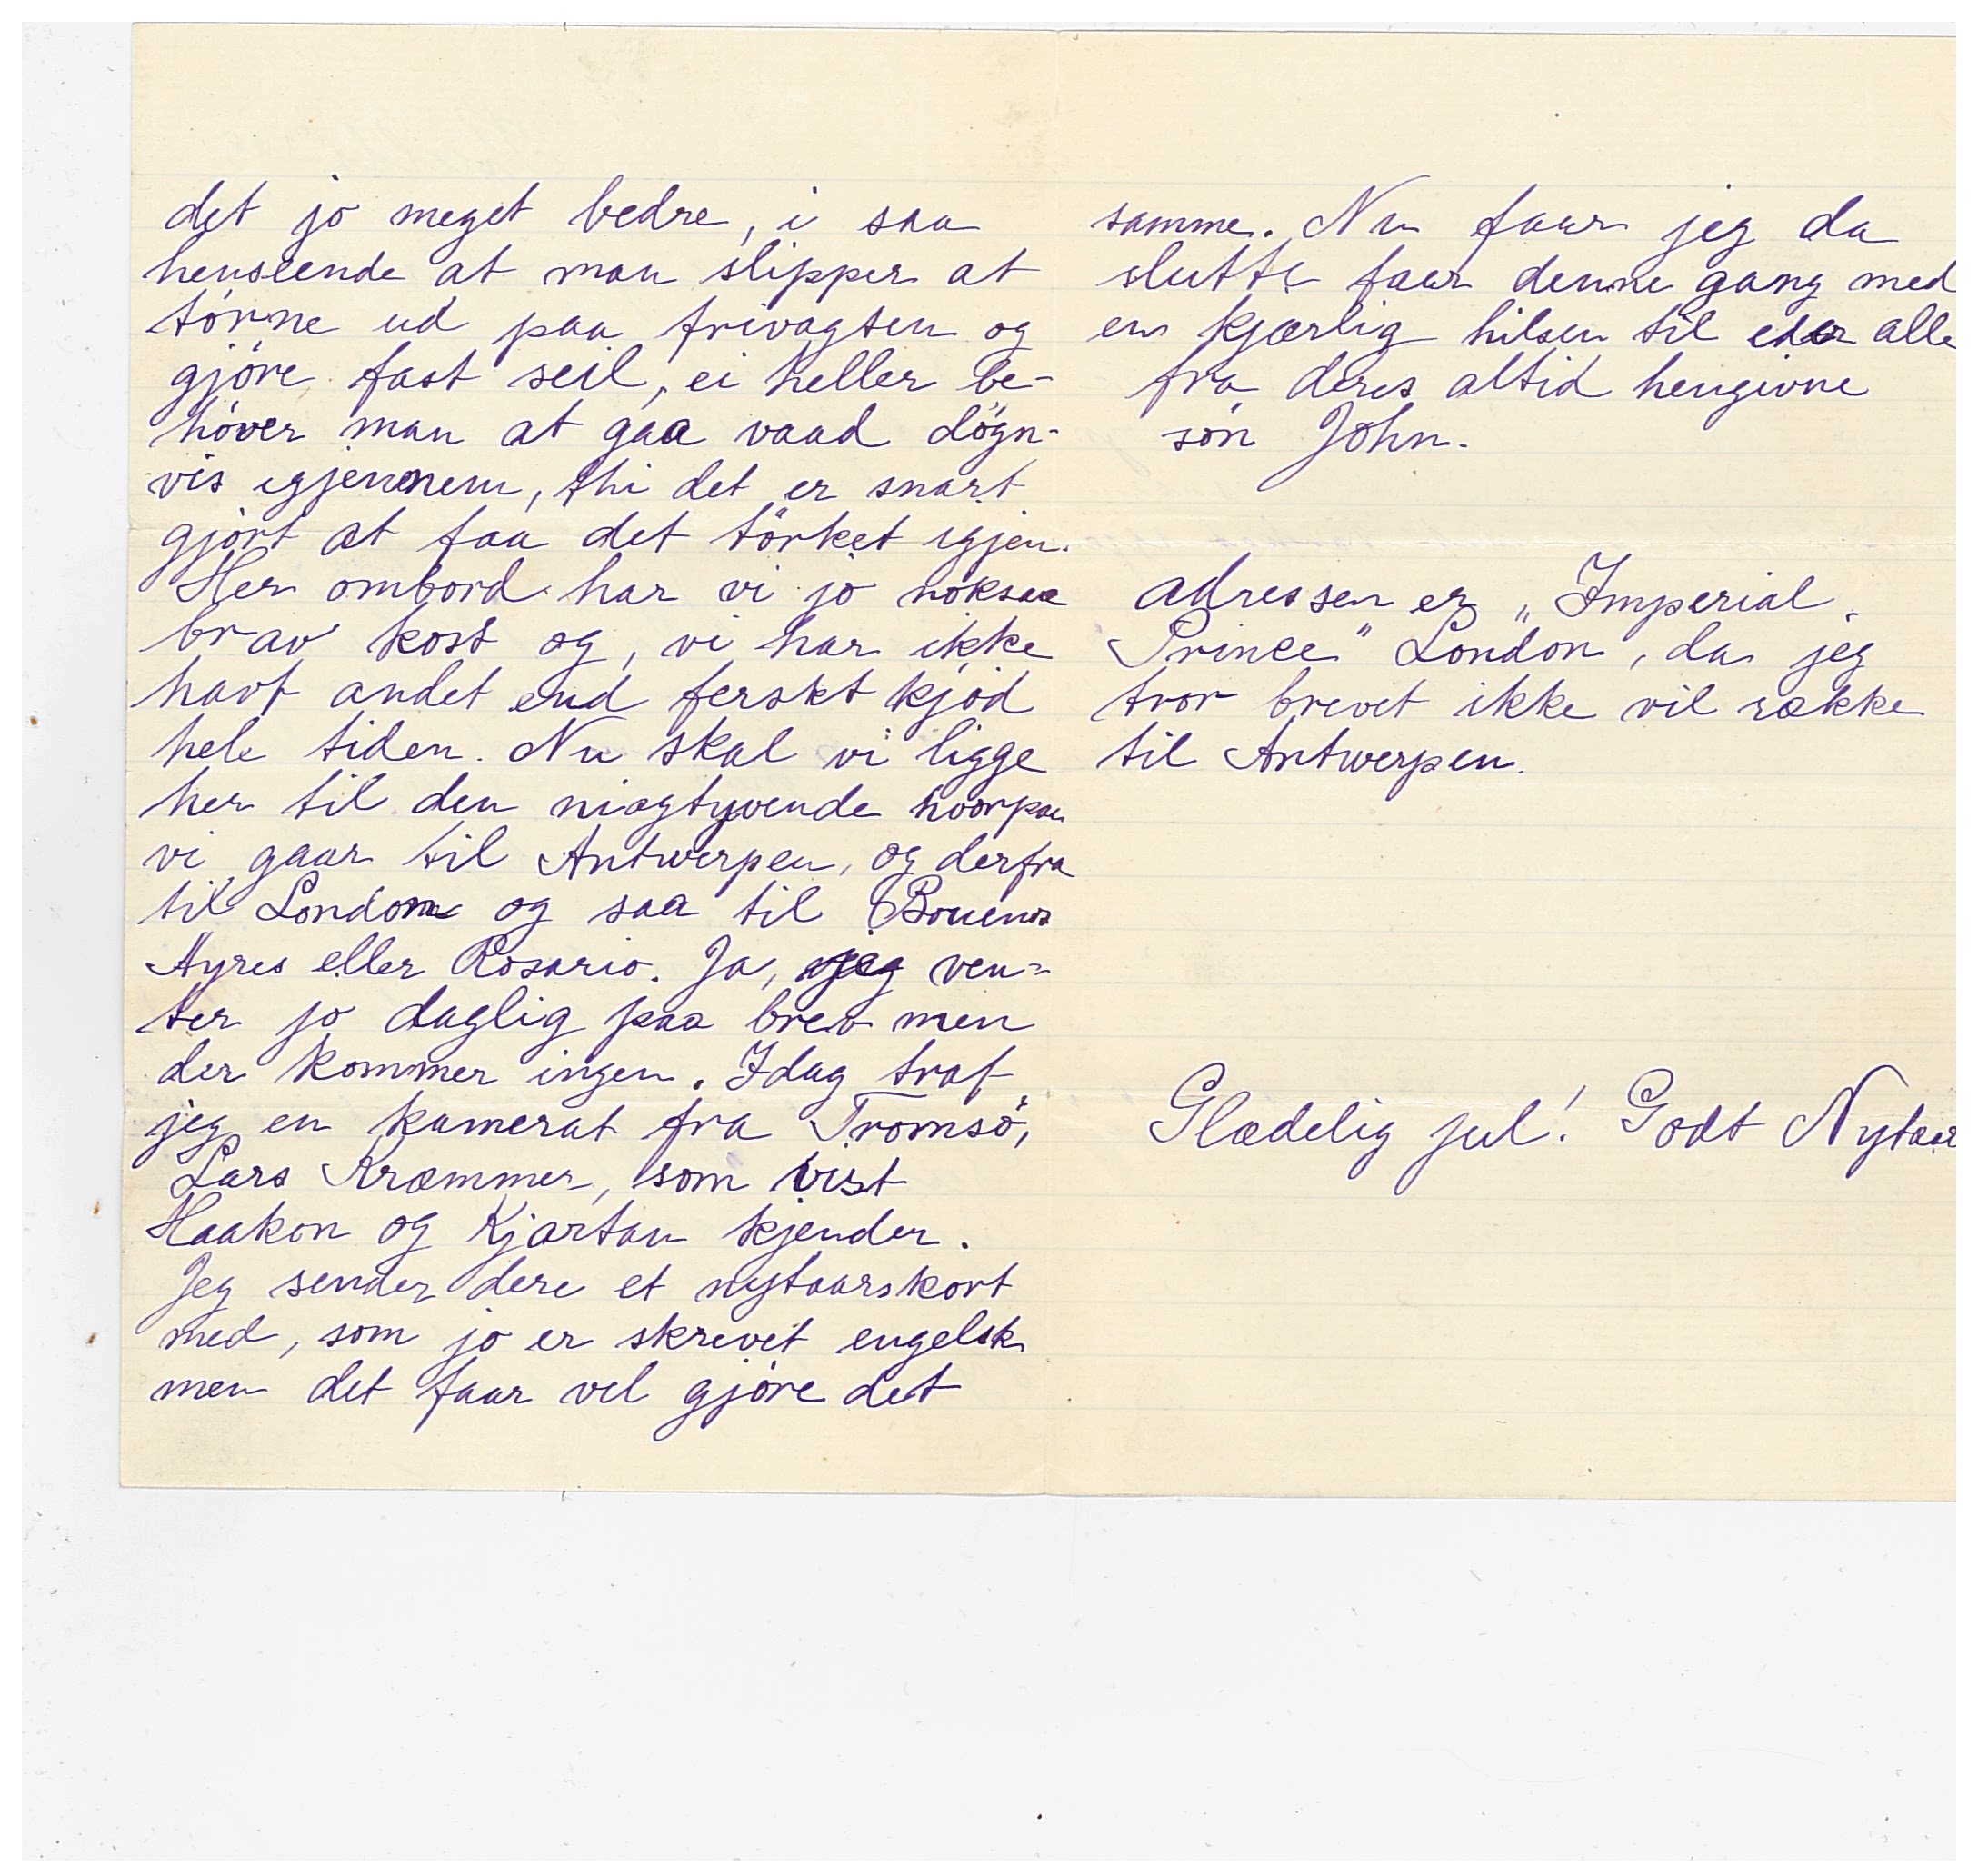 det jo meget bedre, i saa
henseende at man slipper at
törne ud paa frivagten og
gjöre fast seil, ei heller be-
höver man at gaa vaad dögn-
vis igjennem, thi det er snart
gjört at faa det törket igjen.
Her ombord har vi jo noksaa
brav kost og, vi har ikke
havt andet end ferskt kjöd
hele tiden. Nu skal vi ligge
her til den niogtyvende hvorpaa
vi gaar til Antwerpen, og derfra
til London og saa til Bouenos
Ayres eller Rosario. Ja, jeg ven=
ter jo daglig paa brev men
der kommer ingen. Idag traf
jeg en kamerat fra Tromsö,
Lars Kræmmer, som vist
Haakon og Kjartan kjender.
Jeg sender dere et nytaarskort
med, som jo er skrevet engelsk
men det faar vel gjöre det
samme. Nu faar jeg da
slutte faar denne gang med
en kjærlig hilsen til eder alle
fra deres altid hengivne
sön John.
adressen er „Imperial
Prince" London, da jeg
tror brevet ikke vil række
til Antwerpen.
Glædelig jul! Godt Nytaar